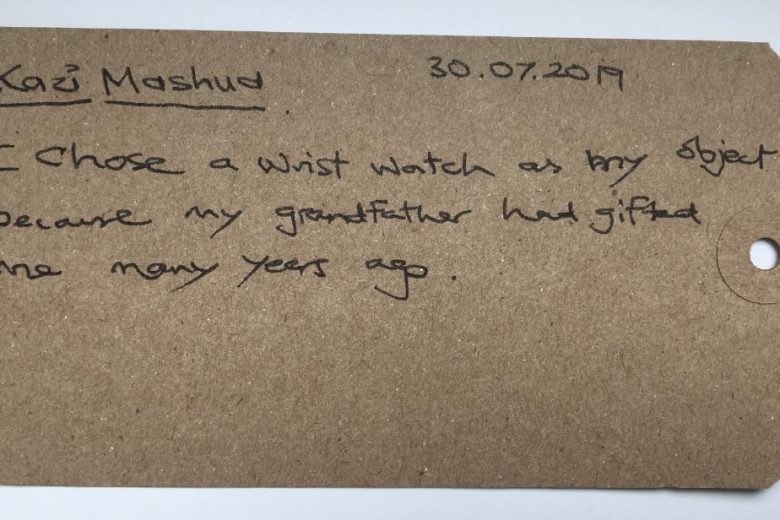 Kazi Mashud 30.07.2019
I Chose a wrist watch as my object
because my grandfather had gifted
me many years ago.